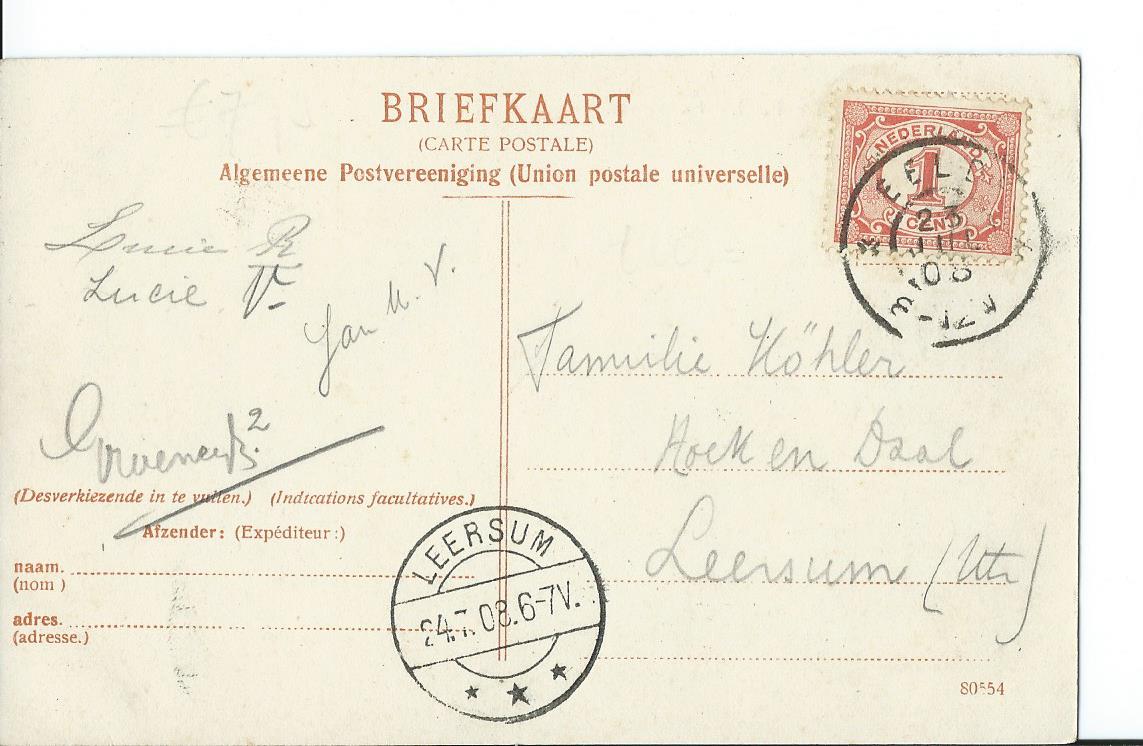 BRIEFKAART
(CARTE POSTALE)
Algemeene Postvereeniging (Union postale universelle)
NEDERLAND
1
CENT
EELDE
23 JUL 08
8-12V
Lucie R
Lucie V.
Jan M. V.
Familie Köhler
Hoek en Daal
Leersum (Utr)
(Desverkiezende in te vullen.) (Indications facultatives.)
Afzender: (Expéditeur:)
naam.
(nom )
adres.
(adresse.)
LEERSUM
24.7.08.6-7V.
80554